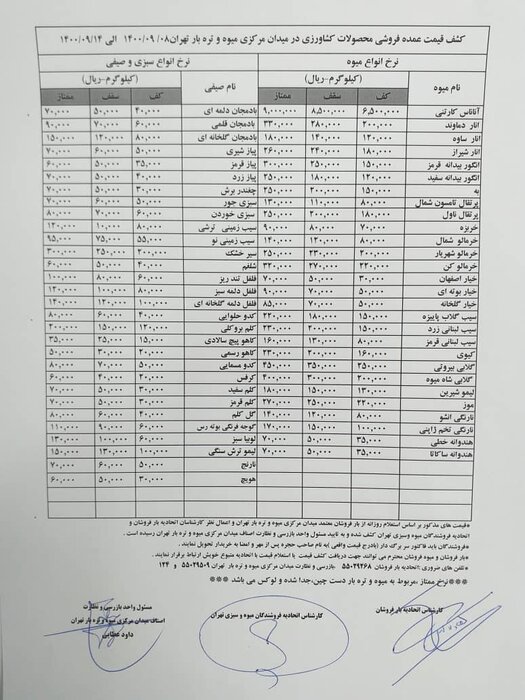 کشف قیمت عمده فروشی محصولات کشاورزی در میدان مرکزی میوه و تره بار تهران ۱۴۰۰/۰۹/۰۸ الی ۱۴۰۰/۰۹/۱۴
نرخ انواع میوه نرخ انواع سبزی و صیفی
نام میوه (کیلوگرم-ریال) نام صیفی (کیلوگرم-ریال)
کف سقف ممتاز کف سقف ممتاز
آناناس کارتنی ۶,۵۰۰,۰۰۰ ۸,۵۰۰,۰۰۰ ۹,۰۰۰,۰۰۰ بادمجان دلمه ای ۴۰,۰۰۰ ۵۰,۰۰۰ ۷۰,۰۰۰
انار دماوند ۲۰۰,۰۰۰ ۲۸۰,۰۰۰ ۳۳۰,۰۰۰ بادمجان قلمی ۶۰,۰۰۰ ۷۰,۰۰۰ ۹۰,۰۰۰
انار ساوه ۱۲۰,۰۰۰ ۱۴۰,۰۰۰ ۱۸۰,۰۰۰ بادمجان گلخانه ای ۸۰,۰۰۰ ۱۲۰,۰۰۰ ۱۵۰,۰۰۰
انار شیراز ۱۸۰,۰۰۰ ۲۴۰,۰۰۰ ۲۶۰,۰۰۰ پیاز شیری ۵۰,۰۰۰ ۶۰,۰۰۰ ۷۰,۰۰۰
انگور بیدانه قرمز ۱۵۰,۰۰۰ ۲۵۰,۰۰۰ ۳۰۰,۰۰۰ پیاز قرمز ۳۵,۰۰۰ ۵۰,۰۰۰ ۶۰,۰۰۰
انگور بیدانه سفید ۱۲۰,۰۰۰ ۱۸۰,۰۰۰ ۲۵۰,۰۰۰ پیاز زرد ۴۰,۰۰۰ ۵۰,۰۰۰ ۷۰,۰۰۰
به ۱۵۰,۰۰۰ ۲۰۰,۰۰۰ ۲۵۰,۰۰۰ چغندر برش ۳۰,۰۰۰ ۴۰,۰۰۰ ۵۰,۰۰۰
پرتقال تامسون شمال ۸۰,۰۰۰ ۱۱۰,۰۰۰ ۱۳۰,۰۰۰ سبزی جور ۵۰,۰۰۰ ۶۰,۰۰۰ ۷۰,۰۰۰
پرتقال ناول ۱۸۰,۰۰۰ ۲۰۰,۰۰۰ ۲۵۰,۰۰۰ سبزی خوردن ۶۰,۰۰۰ ۷۰,۰۰۰ ۸۰,۰۰۰
خربزه ۷۰,۰۰۰ ۸۰,۰۰۰ ۹۰,۰۰۰ سیب زمینی ترشی ۸۰,۰۰۰ ۱۰,۰۰۰ ۱۲۰,۰۰۰
خرمالو شمال ۸۰,۰۰۰ ۱۲۰,۰۰۰ ۱۴۰,۰۰۰ سیب زمینی نو ۵۵,۰۰۰ ۷۵,۰۰۰ ۹۵,۰۰۰
خرمالو شهریار ۲۰۰,۰۰۰ ۲۳۰,۰۰۰ ۲۵۰,۰۰۰ سیر خشک ۲۰۰,۰۰۰ ۲۵۰,۰۰۰ ۳۰۰,۰۰۰
خرمالو کن ۲۲۰,۰۰۰ ۲۷۰,۰۰۰ ۳۲۰,۰۰۰ شلغم ۴۰,۰۰۰ ۵۰,۰۰۰ ۶۰,۰۰۰
خیار اصفهان ۳۰,۰۰۰ ۵۰,۰۰۰ ۷۰,۰۰۰ فلفل تند ریز ۶۰,۰۰۰ ۸۰,۰۰۰ ۱۰۰,۰۰۰
خیار بوته ای ۵۰,۰۰۰ ۷۰,۰۰۰ ۹۰,۰۰۰ فلفل دلمه سبز ۸۰,۰۰۰ ۱۰۰,۰۰۰ ۱۲۰,۰۰۰
خیار گلخانه ۵۰,۰۰۰ ۷۰,۰۰۰ ۸۵,۰۰۰ فلفل دلمه گلخانه ای ۱۰۰,۰۰۰ ۱۲۰,۰۰۰ ۱۴۰,۰۰۰
سیب گلاب پاییزه ۱۵۰,۰۰۰ ۱۸۰,۰۰۰ ۲۲۰,۰۰۰ کدو حلوایی ۴۰,۰۰۰ ۶۰,۰۰۰ ۸۰,۰۰۰
سیب لبنانی زرد ۱۵۰,۰۰۰ ۲۰۰,۰۰۰ ۲۳۰,۰۰۰ کلم بروکلی ۱۲۰,۰۰۰ ۱۵۰,۰۰۰ ۲۰۰,۰۰۰
سیب لبنانی قرمز ۸۰,۰۰۰ ۱۳۰,۰۰۰ ۱۶۰,۰۰۰ کاهو پیچ سالادی ۱۵,۰۰۰ ۲۵,۰۰۰ ۳۵,۰۰۰
کیوی ۱۶۰,۰۰۰ ۲۰۰,۰۰۰ ۲۳۰,۰۰۰ کاهو رسمی ۲۰,۰۰۰ ۳۰,۰۰۰ ۵۰,۰۰۰
گلابی بیروتی ۲۵۰,۰۰۰ ۳۵۰,۰۰۰ ۴۵۰,۰۰۰ کدو مسمایی ۵۰,۰۰۰ ۷۰,۰۰۰ ۸۰,۰۰۰
گلابی شاه میوه ۲۰۰,۰۰۰ ۳۰۰,۰۰۰ ۴۰۰,۰۰۰ کرفس ۲۰,۰۰۰ ۴۰,۰۰۰ ۶۰,۰۰۰
لیمو شیرین ۱۳۰,۰۰۰ ۱۵۰,۰۰۰ ۱۸۰,۰۰۰ کلم سفید ۳۰,۰۰۰ ۴۰,۰۰۰ ۵۰,۰۰۰
موز ۲۳۰,۰۰۰ ۲۵۰,۰۰۰ ۲۷۰,۰۰۰ کلم قرمز ۵۰,۰۰۰ ۶۰,۰۰۰ ۷۰,۰۰۰
نارنگی انشو ۸۰,۰۰۰ ۱۲۰,۰۰۰ ۱۴۰,۰۰۰ گل کلم ۴۰,۰۰۰ ۶۰,۰۰۰ ۸۰,۰۰۰
نارنگی تخم ژاپنی ۱۰۰,۰۰۰ ۱۵۰,۰۰۰ ۱۷۰,۰۰۰ گوجه فرنگی بوته رس ۶۰,۰۰۰ ۹۰,۰۰۰ ۱۱۰,۰۰۰
هندوانه خطی ۳۵,۰۰۰ ۵۰,۰۰۰ ۷۰,۰۰۰ لوبیا سبز ۶۰,۰۰۰ ۱۰۰,۰۰۰ ۱۳۰,۰۰۰
هندوانه ساکاتا ۳۵,۰۰۰ ۵۰,۰۰۰ ۷۰,۰۰۰ لیمو ترش سنگی ۱۰۰,۰۰۰ ۱۳۰,۰۰۰ ۱۵۰,۰۰۰
نارنج ۵۰,۰۰۰ ۶۰,۰۰۰ ۷۰,۰۰۰
هویج ۳۰,۰۰۰ ۵۰,۰۰۰ ۶۰,۰۰۰
*قیمت های مذکور بر اساس استعلام روزانه از بار فروشان معتمد میدان مرکزی میوه و تره بار تهران و اعمال نظر کارشناسان اتحادیه بار فروشان و
اتحادیه فروشندگان میوه وسبزی تهران کشف شده و به تایید مسئول واحد بازرسی و نظارت اصناف میدان مرکزی میوه و تره بار تهران رسیده است .
*فروشندگان باید فاکتور سر برگه دار (بادرج قیمت واقعی )به نام صاحب حجره پس از مهر و امضا به خریدار تحویل نمایند.
*بار فروشان و میوه فروشان محترم می توانند جهت دریافت کشف قیمت با استعلام قیمت با اتحادیه متبوع خویش ارتباط برقرار نمایند.
*تلفن های ضروری: اتحادیه بار فروشان ۵۵۰۲۹۲۶۸ -بازرسی و نظارت میدان مرکزی میوه و تره بار تهران ۵۵۰۲۹۵۰۹ و ۱۲۴
***نرخ ممتاز ،مربوط به میوه و تره بار دست چین،جدا شده و لوکس می باشد ***
کارشناس اتحادیه بار فروشان
کارشناس اتحادیه فروشندگان میوه و سبزی تهران
مسئول واحد بازرسی و نظارت
اصناف میدان مرکزی میوه و تره بار تهران
داود عطایی